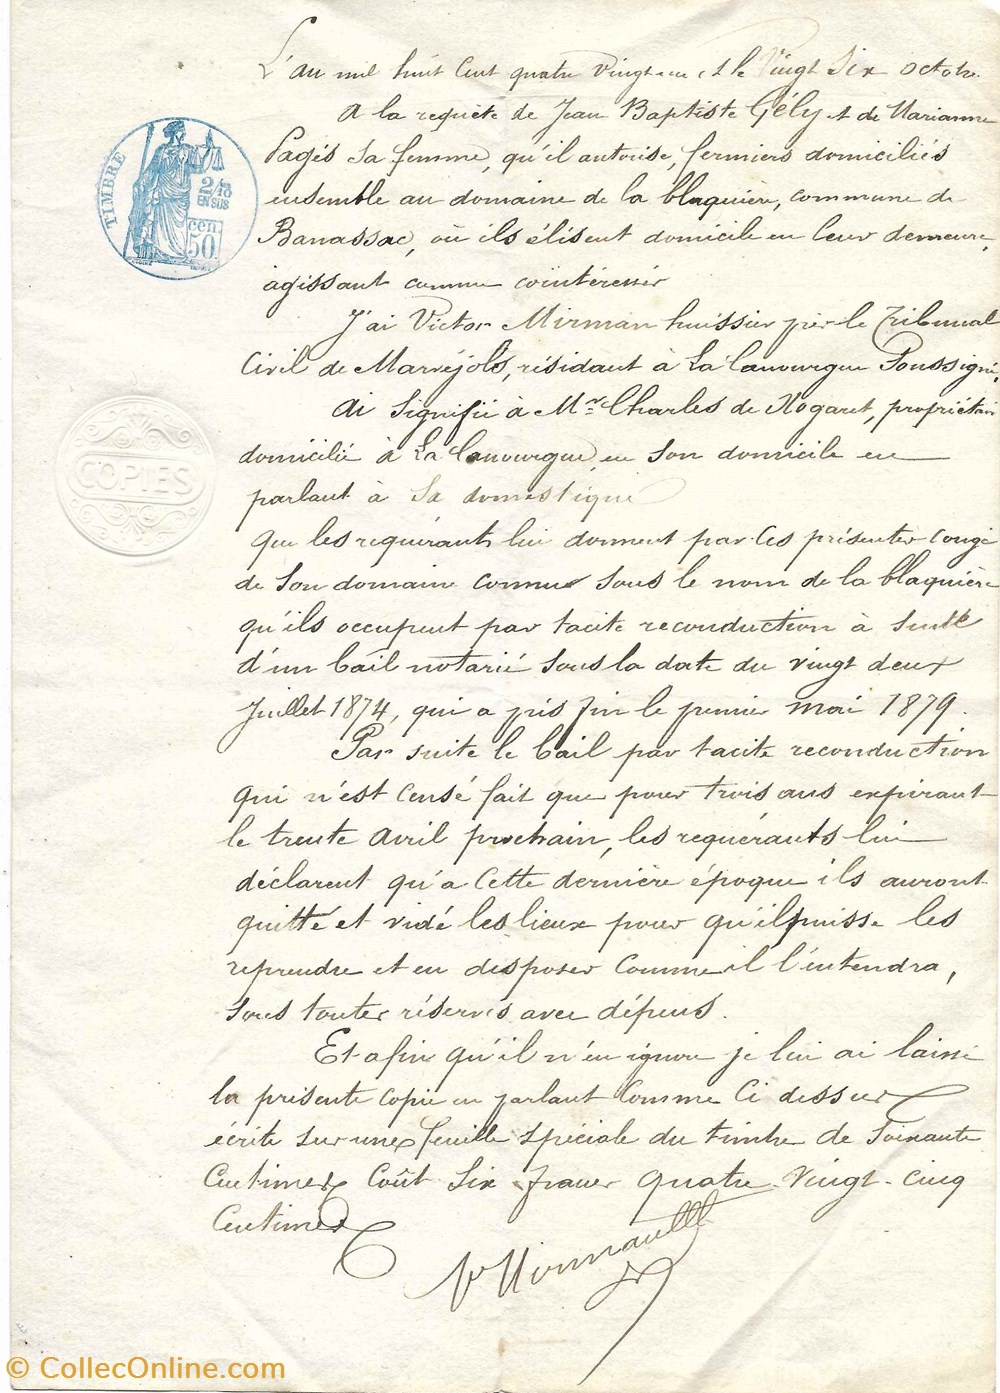 L'an mil huit cent quatre vingt un et le Vingt Six octobre
A la requête de Jean Baptiste Gély et de Marianne
Pagès sa femme, qu'il autorise, fermiers domiciliés
ensemble au domaine de la blaquière, commune de
Banassac, où ils élisent domicile en leur demeure,
agissant comme cointéressés
J'ai Victor Mirman huissier près le Tribunal
Civil de Marvéjols, résidant à La Canourgue Soussigné,
Ai signifié à Mr Charles de Nogaret, propriétaire
domicilié à La Canourgue, en son domicile en
parlant à Sa domestique
Que les requérants lui donnent par ces présentes congé
de son domaine connu sous le nom de la blaquière
qu'ils occupent par tacite reconduction à suite
d'un bail notarié sous la date du vingt deux
Juillet 1874, qui a pris fin le premier mai 1879.
Par suite le bail par tacite reconduction
qui n'est censé fait que pour trois ans expirant
le trente avril prochain, les requérants lui
déclarent qu'à cette dernière époque ils auront
quitté et vidé les lieux pour qu'il puisse les
reprendre et en disposer comme il l'entendra,
sous toutes réserves avec dépens.
Et afin qu'il n'en ignore je lui ai laissé
la présente copie en parlant comme ci dessus
écrite sur une feuille spéciale du timbre de soixante
Centimes Coût Six francs quatre-vingt-cinq
Centimes
TIMBRE
2/10
EN SUS
cen
50
COPIES
© CollecOnline.com